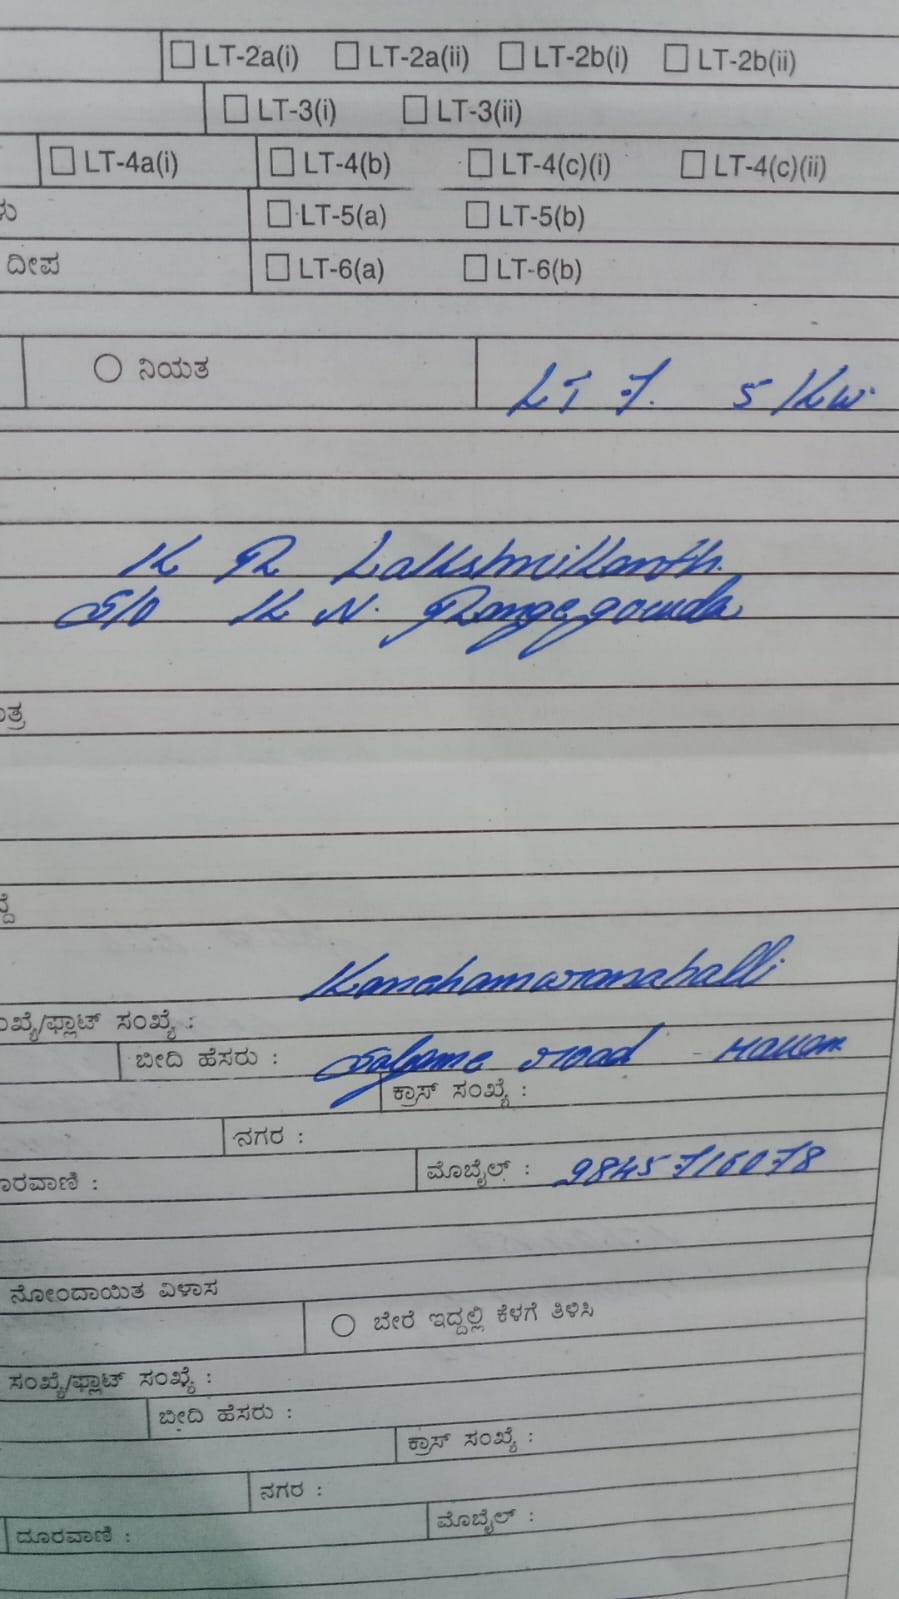 ☐ LT-2a(i) ☐ LT-2a(ii) ☐ LT-2b(i) ☐ LT-2b(ii)
☐ LT-3(i) ☐ LT-3(ii)
☐ LT-4a(i) ☐ LT-4(b) ☐ LT-4(c)(i) ☐ LT-4(c)(ii)
☐ LT-5(a) ☐ LT-5(b)
ದೀಪ ☐ LT-6(a) ☐ LT-6(b)
○ ನಿಯತ LT 7. 5 KW.
K R Lakshmikanth.
S/o K N. Rangegowda
Kanchamaranahalli
ಸಂಖ್ಯೆ/ಫ್ಲಾಟ್ ಸಂಖ್ಯೆ :
ಬೀದಿ ಹೆಸರು : Salgame road - Hassan
ಕ್ರಾಸ್ ಸಂಖ್ಯೆ :
ನಗರ :
ದೂರವಾಣಿ : ಮೊಬೈಲ್ : 9845716078
ನೋಂದಾಯಿತ ವಿಳಾಸ
○ ಬೇರೆ ಇದ್ದಲ್ಲಿ ಕೆಳಗೆ ತಿಳಿಸಿ
ಸಂಖ್ಯೆ/ಫ್ಲಾಟ್ ಸಂಖ್ಯೆ :
ಬೀದಿ ಹೆಸರು :
ಕ್ರಾಸ್ ಸಂಖ್ಯೆ :
ನಗರ :
ದೂರವಾಣಿ : ಮೊಬೈಲ್ :